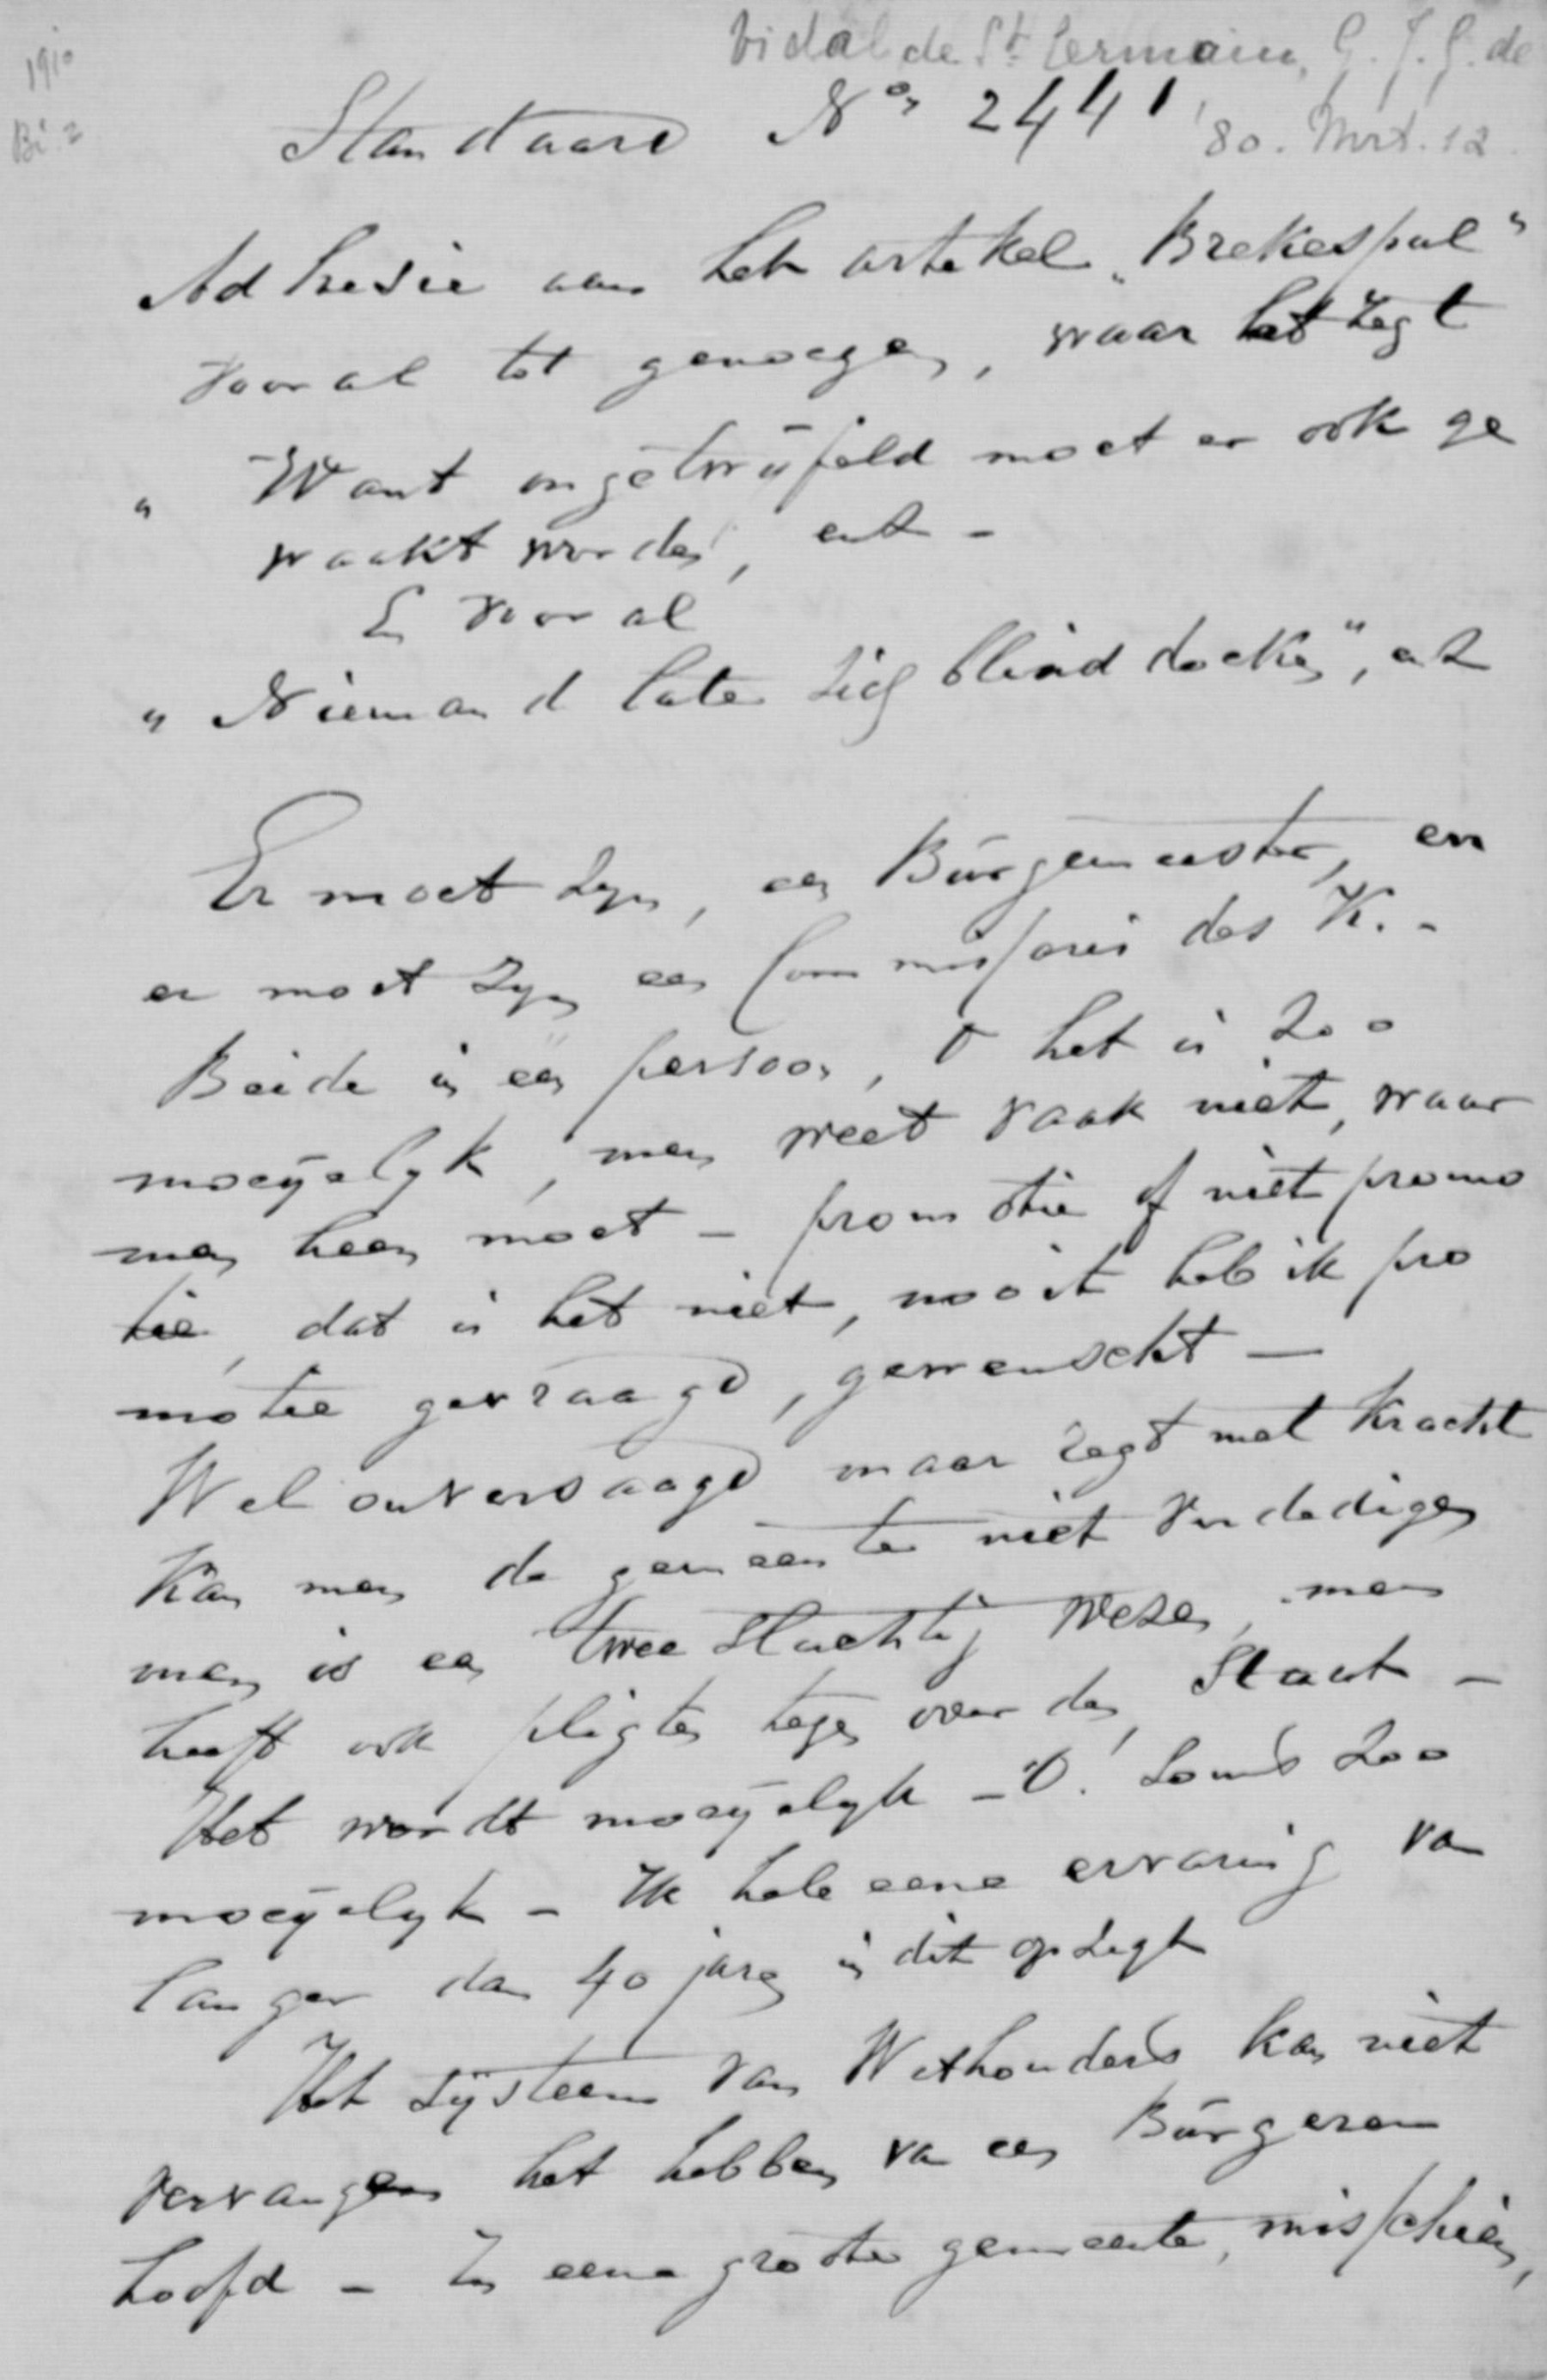 Vidal de St. Germain, G. J. G. de
1910
Bi. 2
Standaard No, 2441,
80. Mrt. 12.
Adhesie aan het artekel „Brekespul"
vooral tot genoegen, waar het zegt
„ Want ongetwijfeld moet er ook ge
waakt worden, ent -
En vooral
„ Niemand late zich blinddoeken", ent
Er moet zyn, een Burgemeester, en
er moet zyn een Commissaris des K. -
Beide in één persoon, O het is zoo
moeyelyk, men weet vaak niet, waar
men heen moet - promotie of niet promo
tie, dat is het niet, nooit heb ik pro
motie gevraagd, gewenscht —
Wel onversaagd maar regt met kracht
kan men de gemeente niet verdedigen
men is een tweeslachtig wezen, men
heeft ook pligten tegenover den Staat -
Het wordt moeyelyk - O! soms zoo
moeyelyk - Ik heb eene ervaring van
langer dan 40 jaren in dit opzigt
Het systeem van Wethouders kan niet
vervangen het hebben van een Burgeren
hoofd - In eene groote gemeente, misschien,